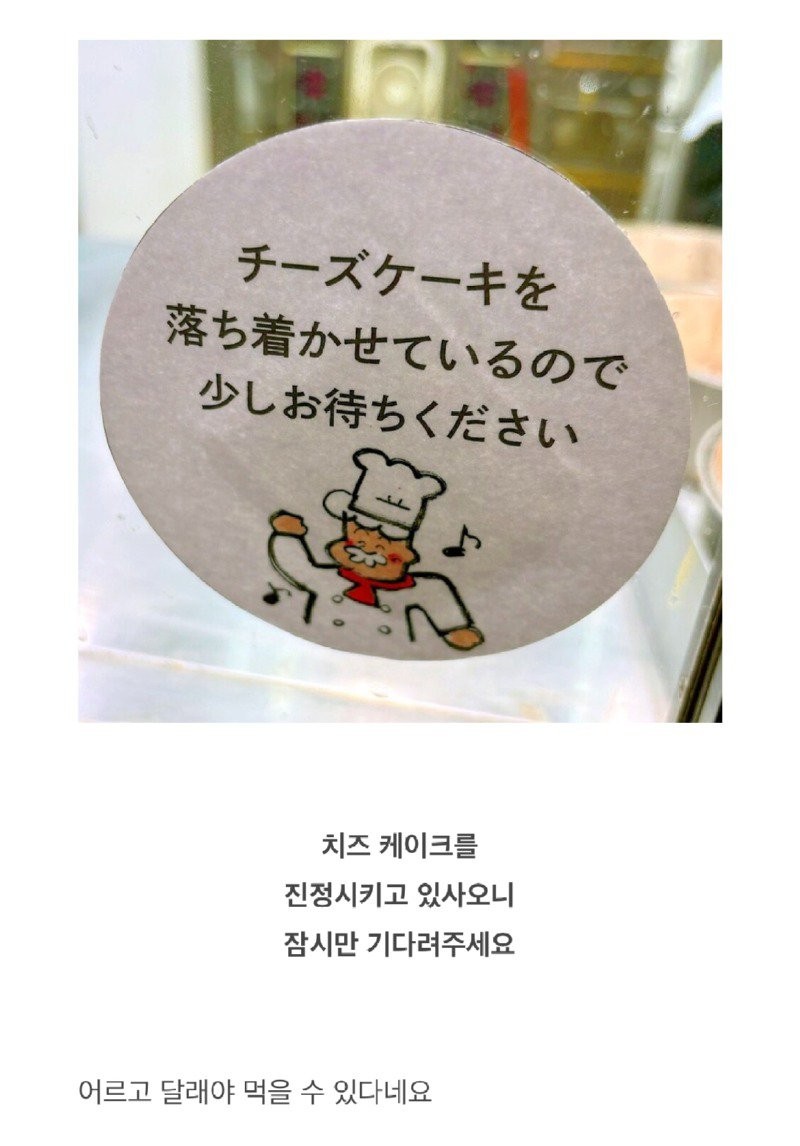 チーズケーキを
落ち着かせているので
少しお待ちください
치즈 케이크를
진정시키고 있사오니
잠시만 기다려주세요
어르고 달래야 먹을 수 있다네요